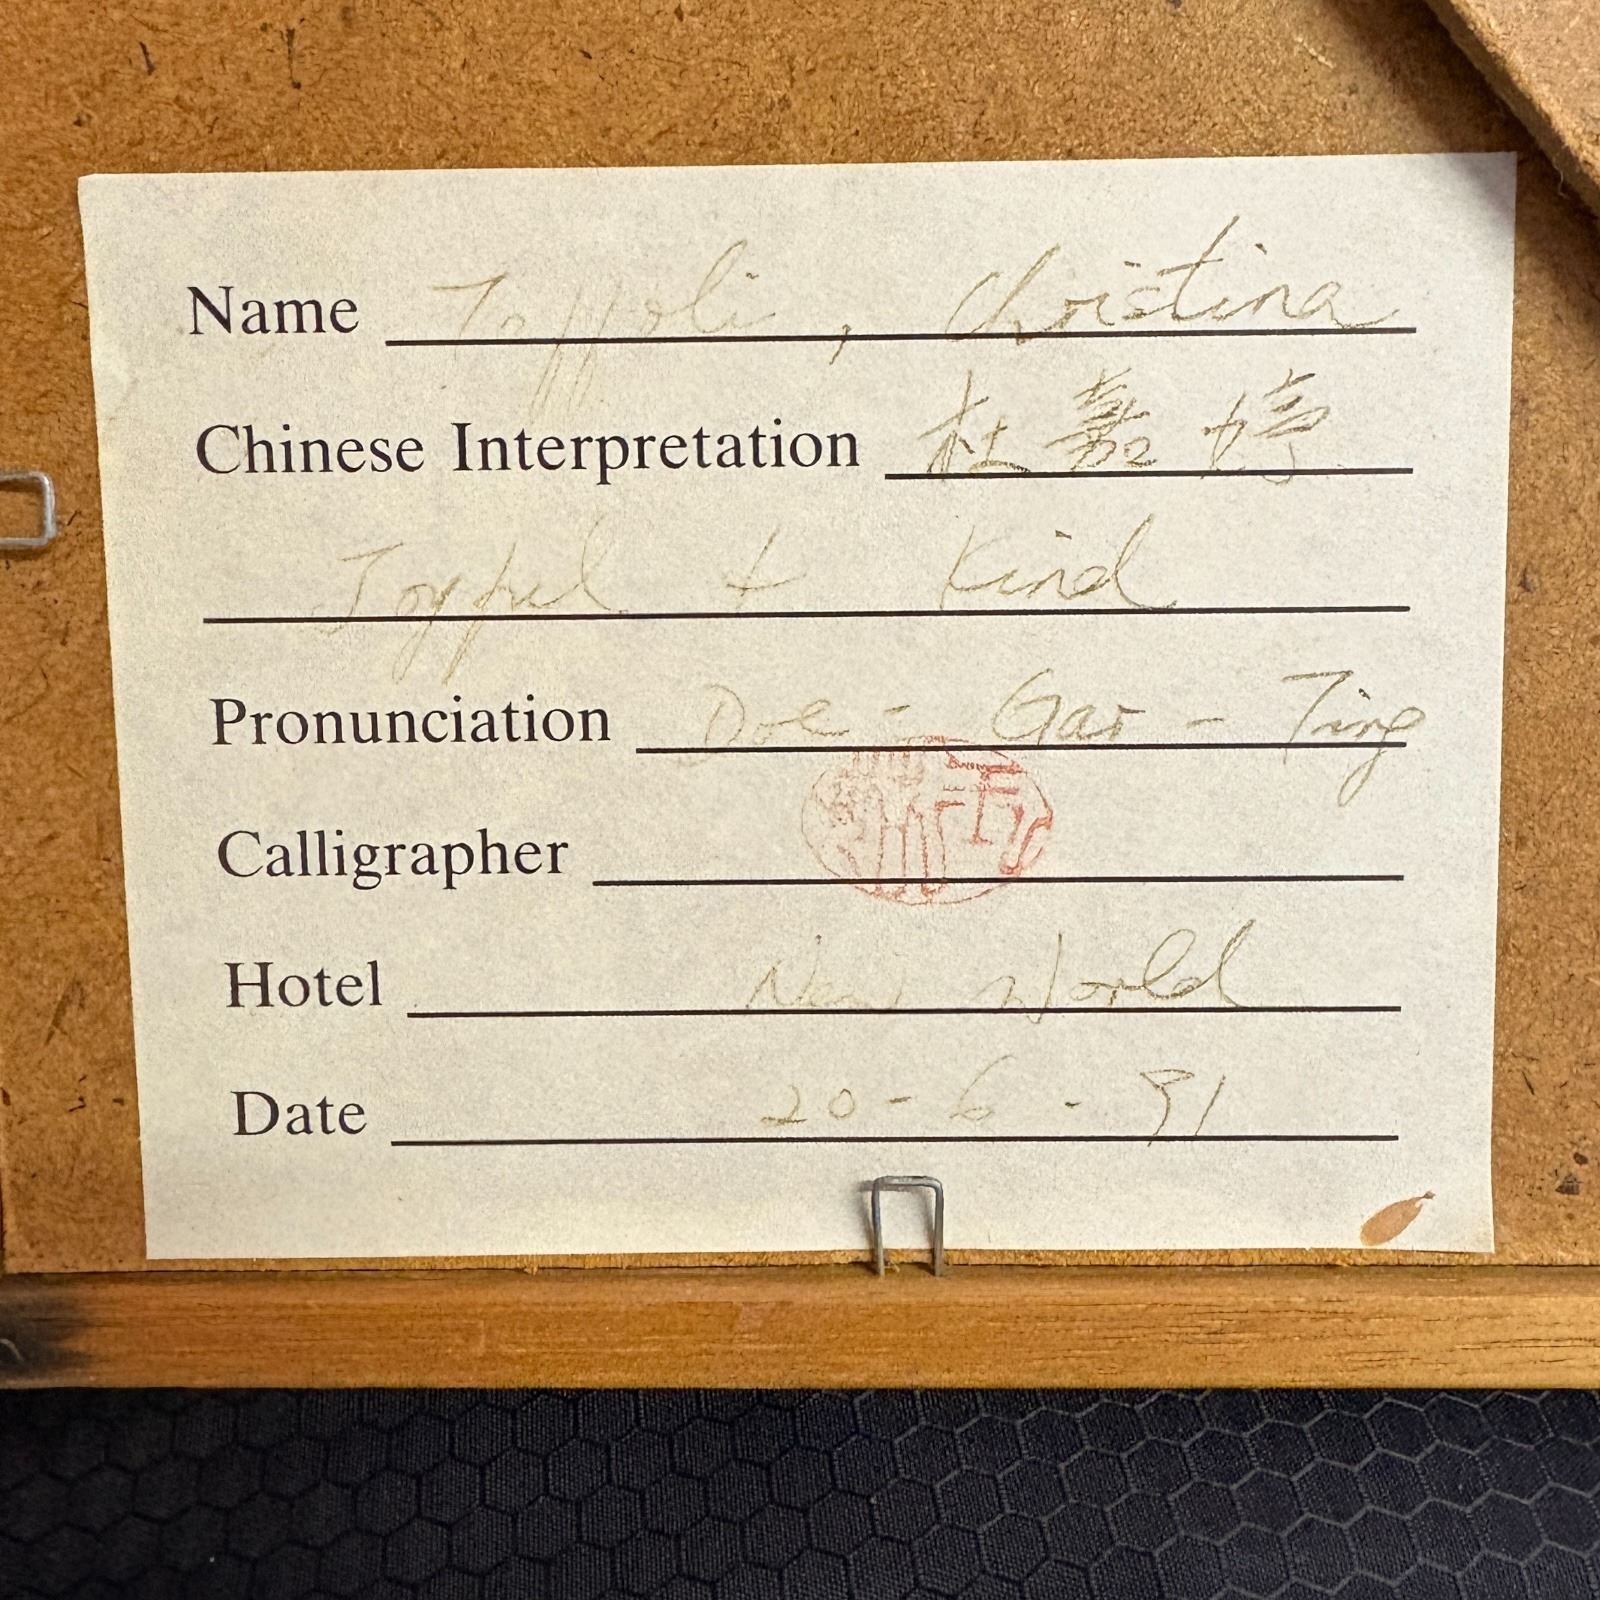 Name Toffoli, Christina
Chinese Interpretation 杜嘉婷
Joyful + Kind
Pronunciation Doe - Gar - Ting
Calligrapher
Hotel New World
Date 20 - 6 - 91